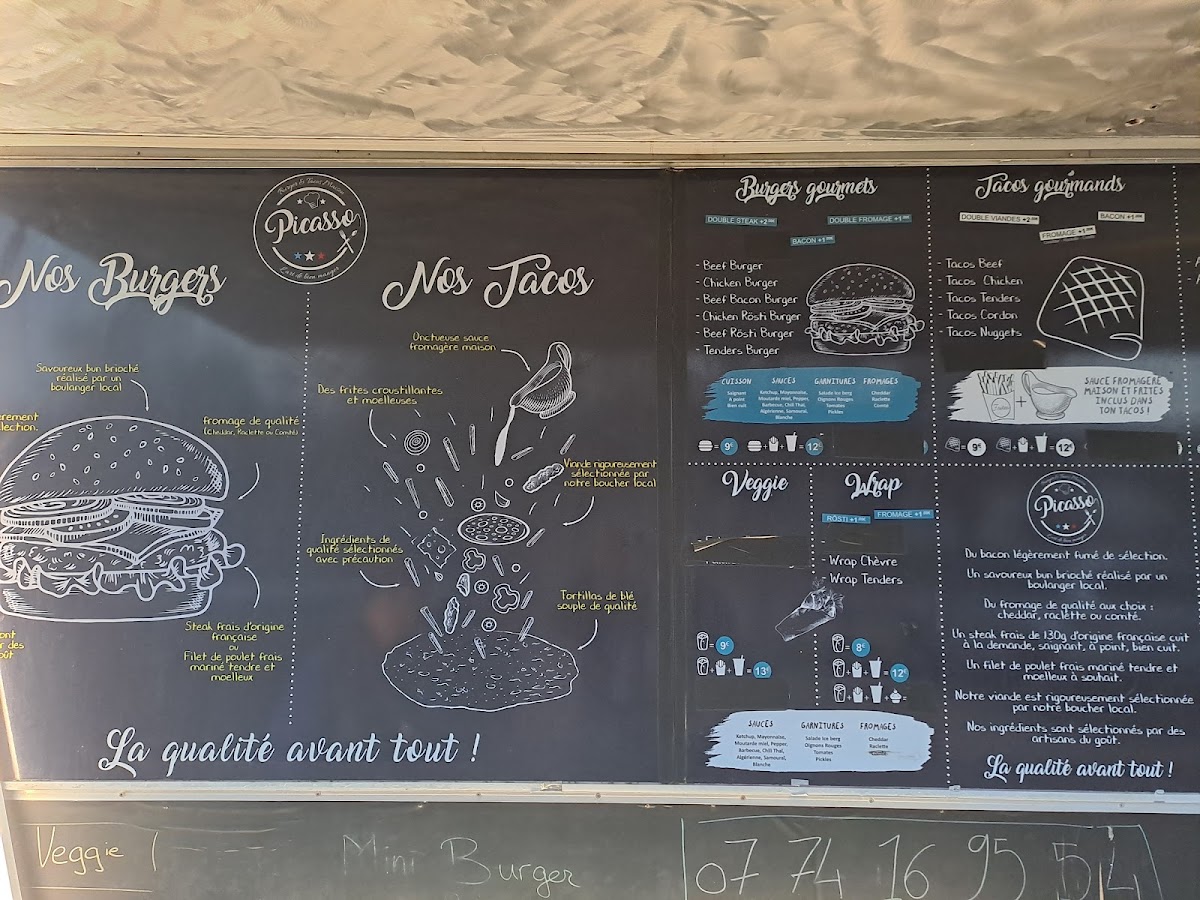 Burger & Tacos Maison
Picasso
L'art de bien manger
Nos Burgers
Savoureux bun brioché
réalisé par un
boulanger local
fromage de qualité
(Cheddar, Raclette ou Comté)
Steak frais d'origine
française
ou
Filet de poulet frais
mariné tendre et
moelleux
Nos Tacos
Onctueuse sauce
fromagère maison
Des frites croustillantes
et moelleuses
Viande rigoureusement
sélectionnée par
notre boucher local
Ingrédients de
qualité sélectionnés
avec précaution
Tortillas de blé
souple de qualité
La qualité avant tout !
Burgers gourmets
DOUBLE STEAK +2
DOUBLE FROMAGE +1
BACON +1
- Beef Burger
- Chicken Burger
- Beef Bacon Burger
- Chicken Rösti Burger
- Beef Rösti Burger
- Tenders Burger
CUISSON
Saignant
A point
Bien cuit
SAUCES
Ketchup, Mayonnaise,
Moutarde miel, Pepper,
Barbecue, Chili Thaï,
Algérienne, Samouraï,
Blanche
GARNITURES
Salade ice berg
Oignons Rouges
Tomates
Pickles
FROMAGES
Cheddar
Raclette
Comté
= 9€
+ + = 12€
Tacos gourmands
DOUBLE VIANDES +2
BACON +1
FROMAGE +1
- Tacos Beef
- Tacos Chicken
- Tacos Tenders
- Tacos Cordon
- Tacos Nuggets
SAUCE FROMAGÈRE
MAISON ET FRITES
INCLUS DANS
TON TACOS !
= 9€
+ + = 12€
Veggie
= 9€
+ + = 13€
Wrap
RÖSTI +1
FROMAGE +1
- Wrap Chèvre
- Wrap Tenders
= 8€
+ + = 12€
+ + + =
SAUCES
Ketchup, Mayonnaise,
Moutarde miel, Pepper,
Barbecue, Chili Thaï,
Algérienne, Samouraï,
Blanche
GARNITURES
Salade ice berg
Oignons Rouges
Tomates
Pickles
FROMAGES
Cheddar
Raclette
Picasso
Du bacon légèrement fumé de sélection.
Un savoureux bun brioché réalisé par un
boulanger local.
Du fromage de qualité aux choix :
cheddar, raclette ou comté.
Un steak frais de 130g d'origine française cuit
à la demande, saignant, à point, bien cuit.
Un filet de poulet frais mariné tendre et
moelleux à souhait.
Notre viande est rigoureusement sélectionnée
par notre boucher local.
Nos ingrédients sont sélectionnés par des
artisans du goût.
La qualité avant tout !
Veggie
Mini Burger
07 74 16 95 54